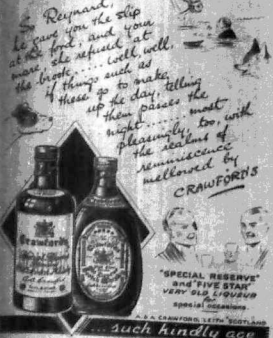 So Reynard,
he gave you the slip
at the ford, and your
mare, she refused at
the brook..... well, well,
if things such as
these go to make
up the day, telling
them passes the
night..... most
pleasingly, too, with
the realms of
reminiscence
mellowed by
CRAWFORD'S
Crawford's
"SPECIAL RESERVE"
and "FIVE STAR"
VERY OLD LIQUEUR
for
special occasions.
A. & A. CRAWFORD, LEITH, SCOTLAND
...such kindly age